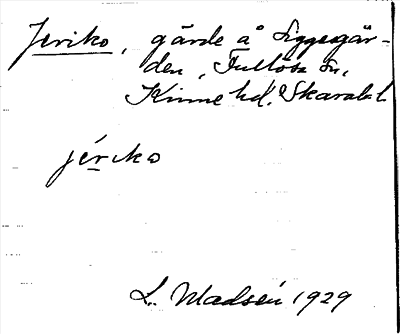 Jeriko, gärde å Siggagår-
den, Fullösa sn,
Kinne hd. Skarab. l.
jériko
L. Madsén 1929